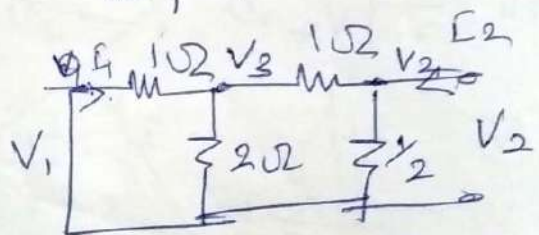 1Ω V3 1Ω V2 I2
V1 2Ω 1/2 V2